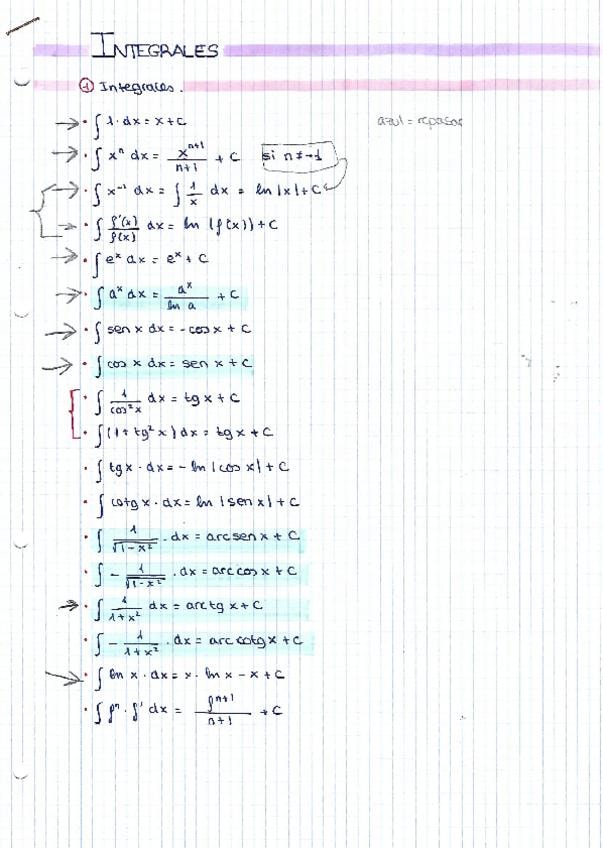 INTEGRALES
① Integrales.
azul = repasar
→ • ∫ 1 · dx = x + C
→ • ∫ xⁿ dx = xⁿ⁺¹/(n+1) + C   si n ≠ -1
→ • ∫ x⁻¹ dx = ∫ 1/x dx = ln |x| + C
→ • ∫ f'(x)/f(x) dx = ln (f(x)) + C
→ • ∫ eˣ dx = eˣ + C
→ • ∫ aˣ dx = aˣ/ln a + C
→ • ∫ sen x dx = - cos x + C
→ • ∫ cos x dx = sen x + C
• ∫ 1/cos²x dx = tg x + C
• ∫ (1 + tg² x) dx = tg x + C
• ∫ tg x · dx = - ln |cos x| + C
• ∫ cotg x · dx = ln |sen x| + C
• ∫ 1/√(1-x²) · dx = arc sen x + C
• ∫ - 1/√(1-x²) · dx = arc cos x + C
→ • ∫ 1/(1+x²) dx = arc tg x + C
• ∫ - 1/(1+x²) · dx = arc cotg x + C
→ • ∫ ln x · dx = x · ln x - x + C
• ∫ fⁿ · f' dx = fⁿ⁺¹/(n+1) + C